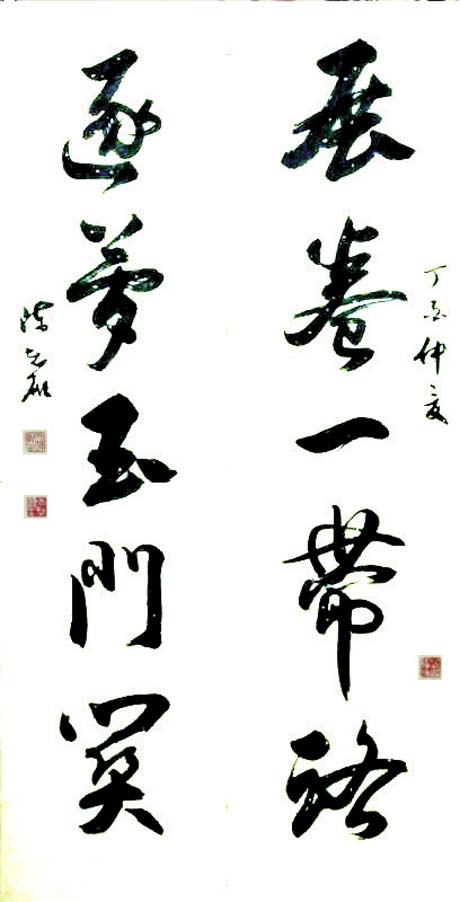 丁酉仲夏
展卷一帶路
逐夢玉門關
陳